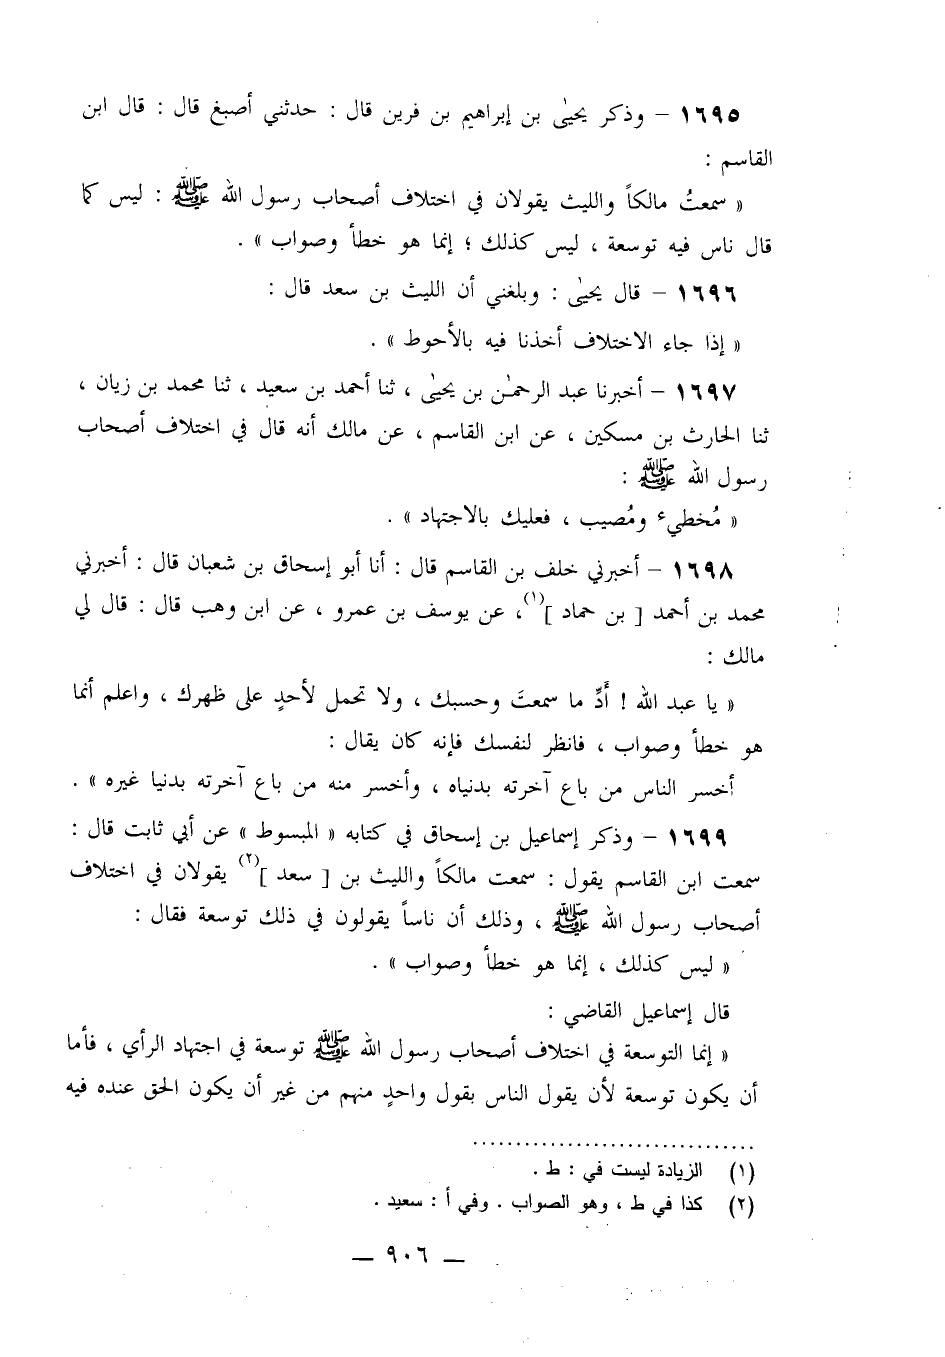 ١٦٩٥ – وذكر يحيىٰ بن إبراهيم بن فرين قال : حدثني أصبغ قال : قال ابن
القاسم :
« سمعتُ مالكاً والليث يقولان في اختلاف أصحاب رسول الله ﷺ : ليس كما
قال ناس فيه توسعة ، ليس كذلك ؛ إنما هو خطأ وصواب » .
١٦٩٦ – قال يحيىٰ : وبلغني أن الليث بن سعد قال :
« إذا جاء الاختلاف أخذنا فيه بالأحوط » .
١٦٩٧ – أخبرنا عبد الرحمٰن بن يحيىٰ ، ثنا أحمد بن سعيد ، ثنا محمد بن زيان ،
ثنا الحارث بن مسكين ، عن ابن القاسم ، عن مالك أنه قال في اختلاف أصحاب
رسول الله ﷺ :
« مُخطيء ومُصيب ، فعليك بالاجتهاد » .
١٦٩٨ – أخبرني خلف بن القاسم قال : أنا أبو إسحاق بن شعبان قال : أخبرني
محمد بن أحمد [ بن حماد ](١)، عن يوسف بن عمرو ، عن ابن وهب قال : قال لي
مالك :
« يا عبد الله ! أَدِّ ما سمعتَ وحسبك ، ولا تحمل لأحدٍ على ظهرك ، واعلم أنما
هو خطأ وصواب ، فانظر لنفسك فإنه كان يقال :
أخسر الناس من باع آخرته بدنياه ، وأخسر منه من باع آخرته بدنيا غيره » .
١٦٩٩ – وذكر إسماعيل بن إسحاق في كتابه « المبسوط » عن أبي ثابت قال :
سمعت ابن القاسم يقول : سمعت مالكاً والليث بن [ سعد ](٢) يقولان في اختلاف
أصحاب رسول الله ﷺ ، وذلك أن ناساً يقولون في ذلك توسعة فقال :
« ليس كذلك ، إنما هو خطأ وصواب » .
قال إسماعيل القاضي :
« إنما التوسعة في اختلاف أصحاب رسول الله ﷺ توسعة في اجتهاد الرأي ، فأما
أن يكون توسعة لأن يقول الناس بقول واحدٍ منهم من غير أن يكون الحق عنده فيه
(١) الزيادة ليست في : ط .
(٢) كذا في ط ، وهو الصواب . وفي أ : سعيد .
– ٩٠٦ –